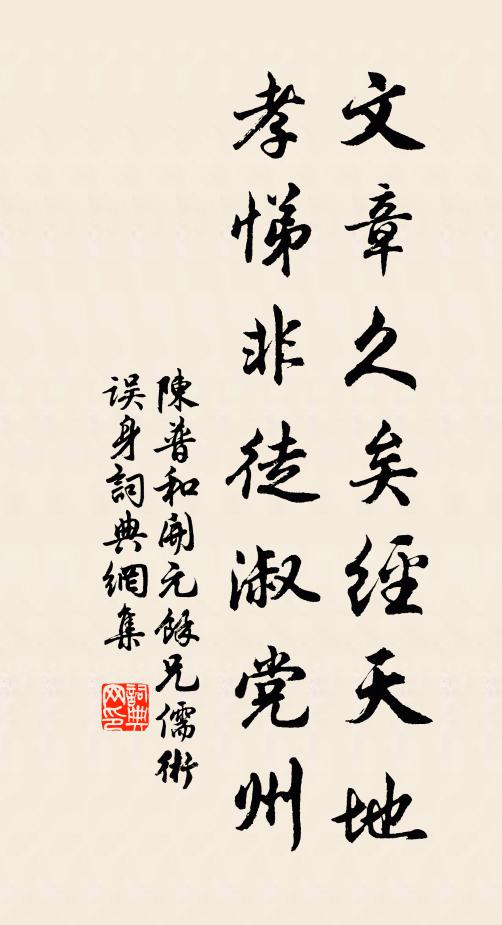 文章久矣經天地
孝悌非徒淑党州
陳普和開元餘兄儒術
误身詞典網集
詞典网印